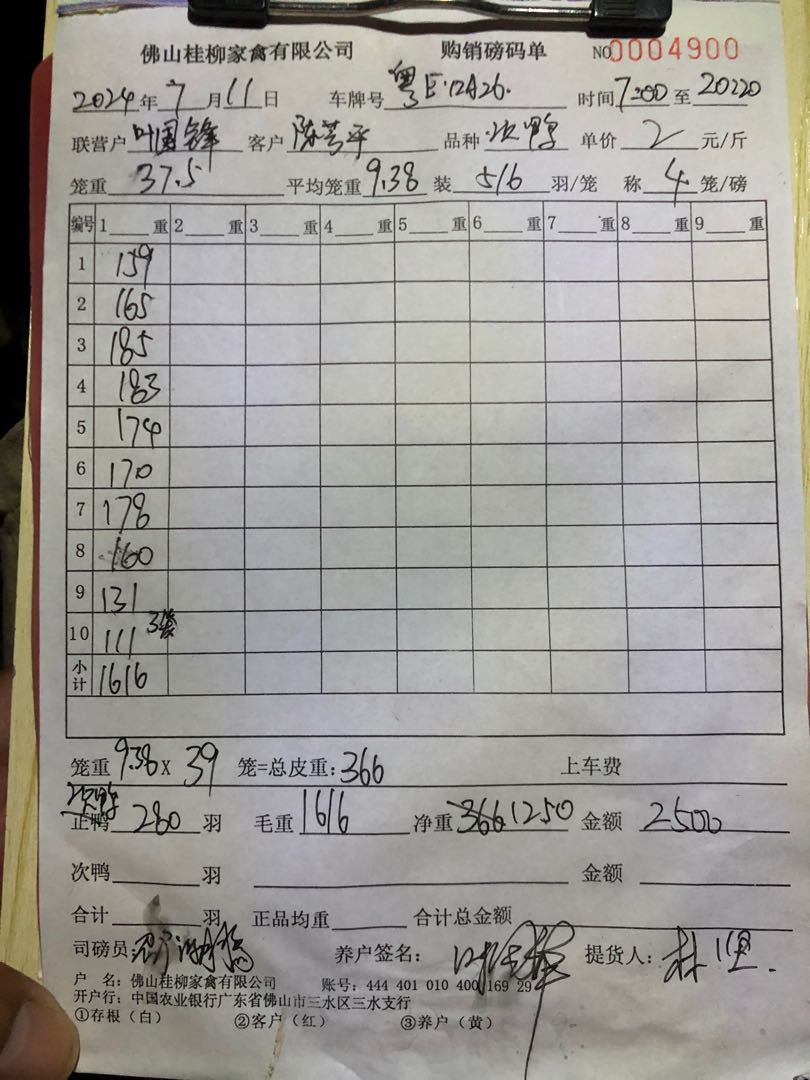 佛山桂柳家禽有限公司 购销磅码单 NO0004900
2024年7月11日 车牌号 粤E·12A26. 时间7:00至20:20
联营户 叶国锋 客户 陈 平 品种 次鸭 单价 2 元/斤
笼重 37.5 平均笼重 9.38 装 5/6 羽/笼 称 4 笼/磅
编号 1 重 2 重 3 重 4 重 5 重 6 重 7 重 8 重 9 重
1 159
2 165
3 185
4 183
5 174
6 170
7 178
8 160
9 131
10 111 3笼
小计 1616
笼重 9.38 X 39 笼=总皮重:366 上车费
次鸭
正鸭 280 羽 毛重 1616 净重 366 1250 金额 2500
次鸭 羽 金额
合计 羽 正品均重 合计总金额
司磅员 养户签名: 叶国锋 提货人: 林
户 名: 佛山桂柳家禽有限公司 账号: 444 401 010 400 169 29
开户行: 中国农业银行广东省佛山市三水区三水支行
①存根（白） ②客户（红） ③养户（黄）